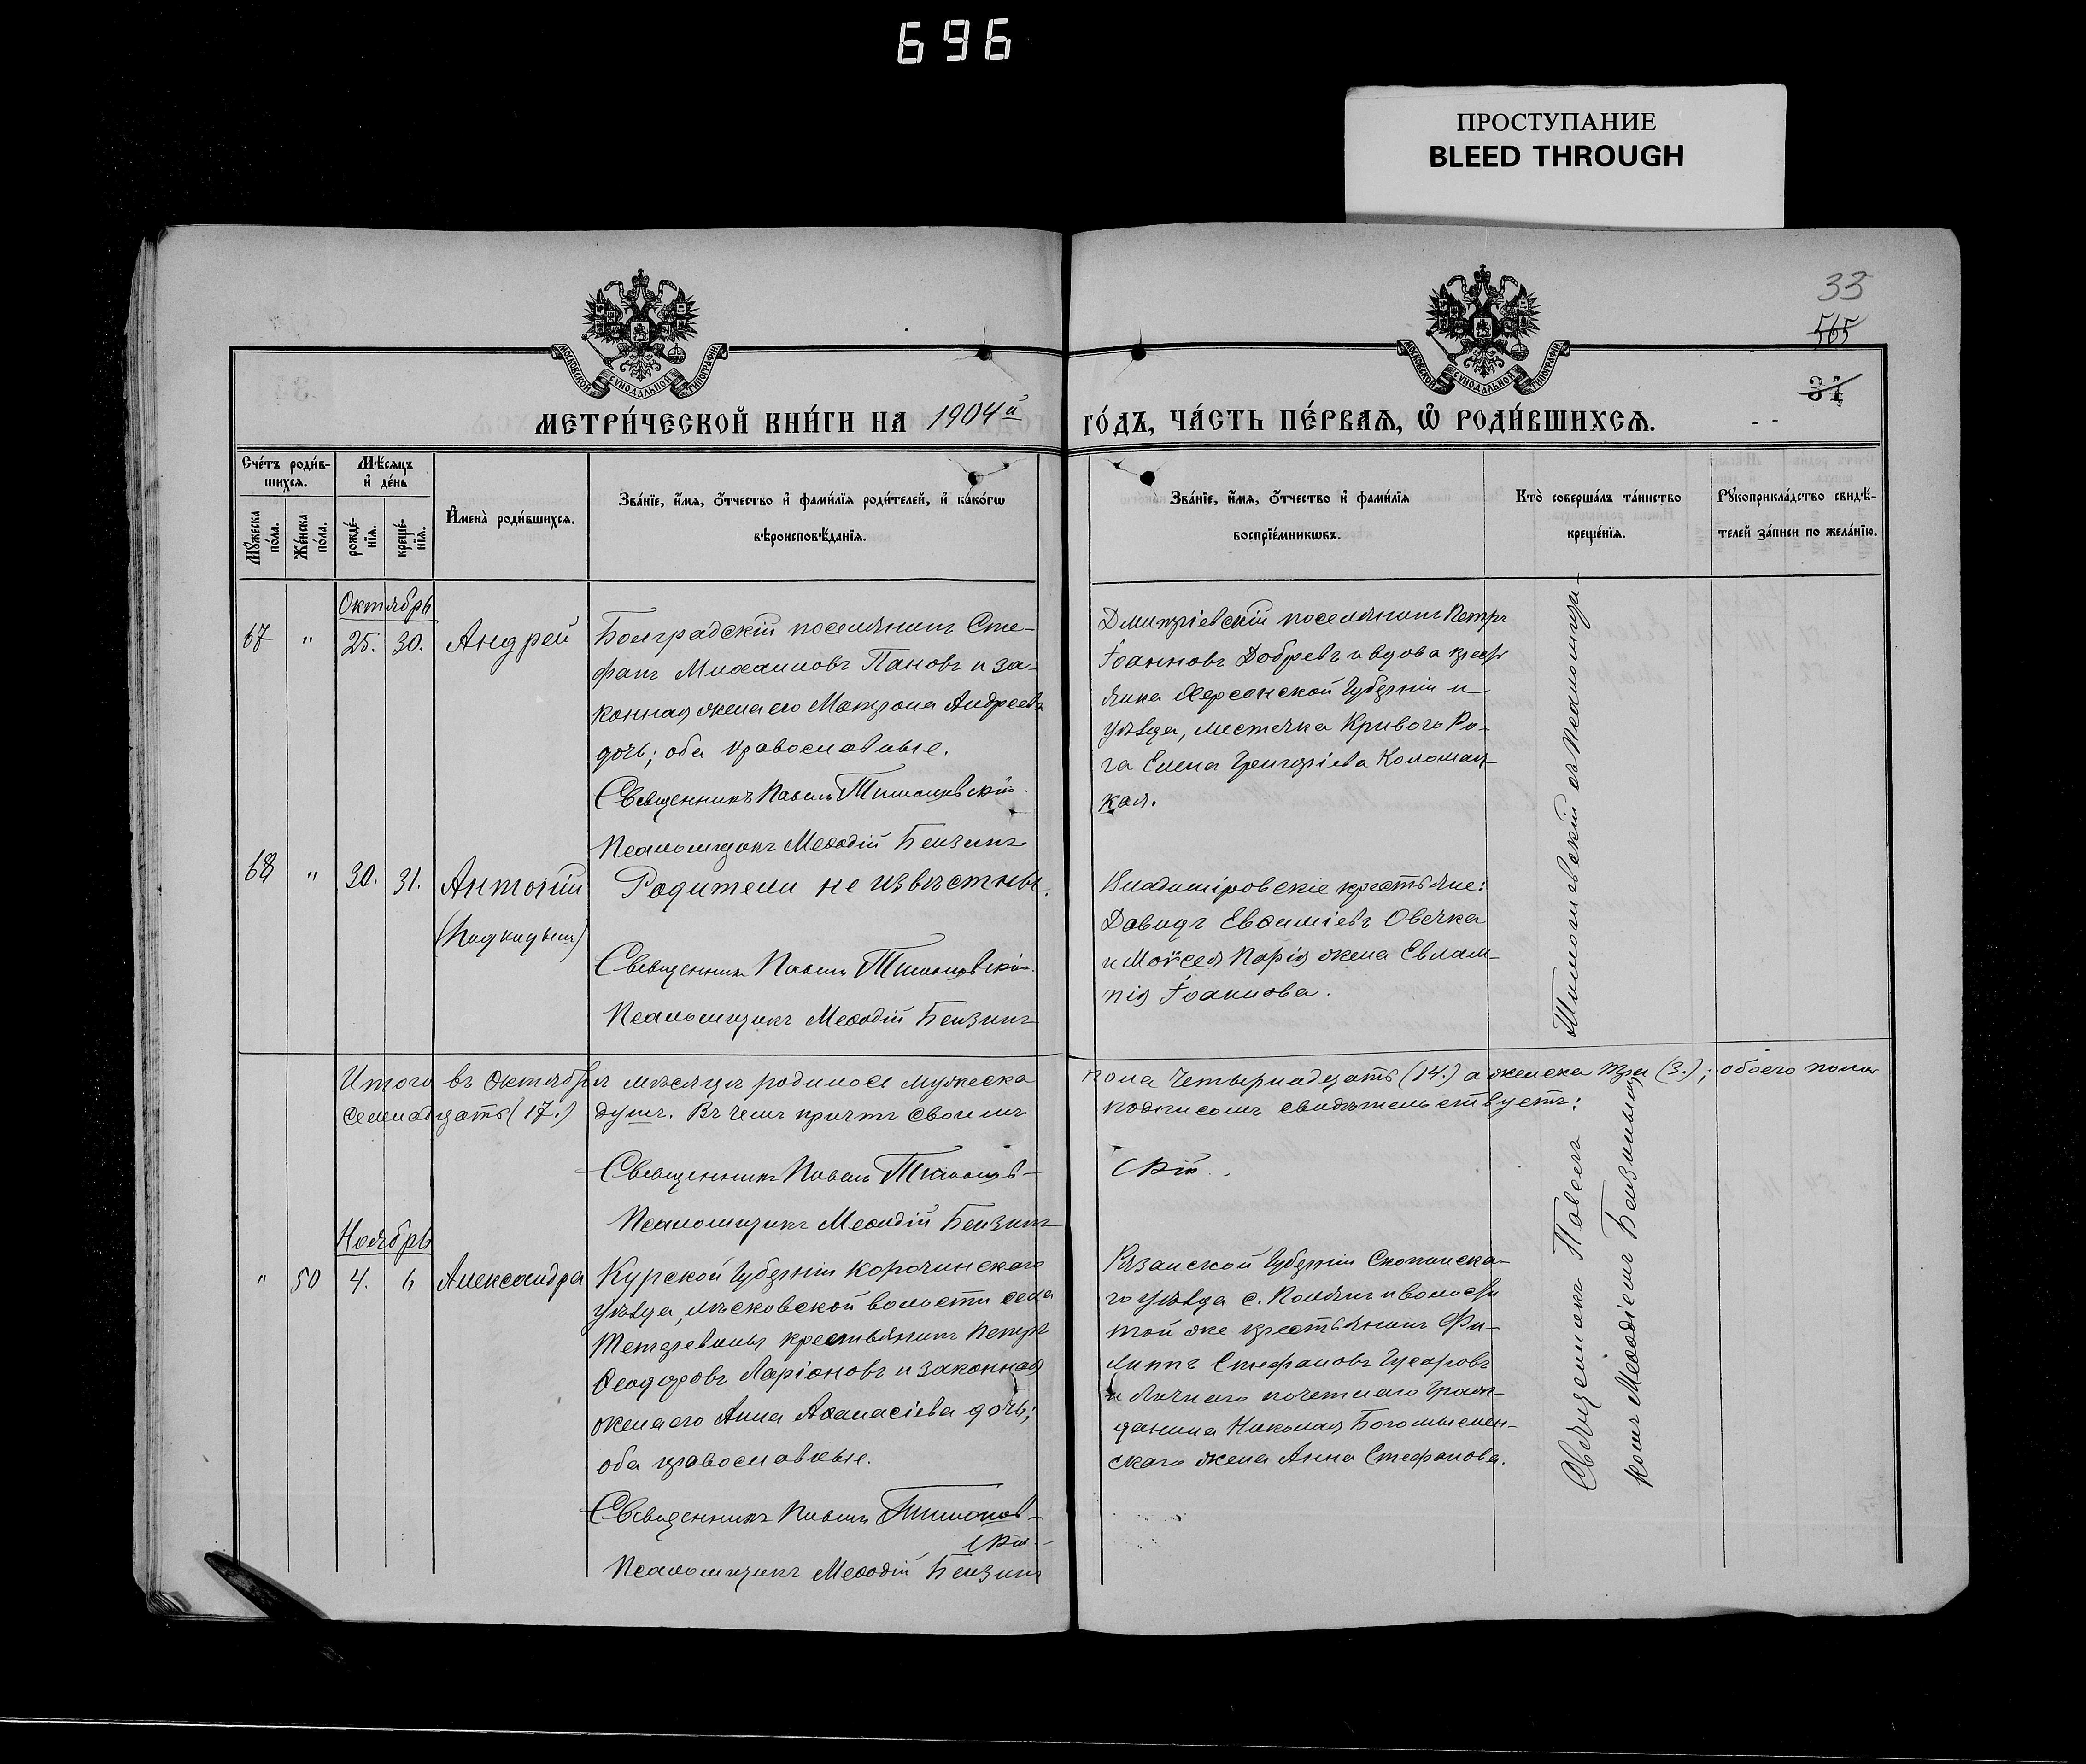 696
ПРОСТУПАНИЕ
BLEED THROUGH
33
565
31
МЕТРИ́ЧЕСКОЙ КНИ́ГИ НА 1904й ГО́ДЪ, ЧА́СТЬ ПЕ́РВАѦ, Ѡ РОДИ́ВШИХСѦ.
Сче́тъ роди́в-
шихсѧ.
Мꙋ́жеска по́ла.
Же́нска по́ла.
Мѣ́сѧцъ и де́нь
рожде́-
нїѧ.
креще́-
нїѧ.
Имена̀ роди́вшихсѧ.
Зва́нїе, и́мѧ, ѻ́тчество и фами́лїѧ роди́телей, и како́гѡ
вѣроисповѣ́данїѧ.
Зва́нїе, и́мѧ, ѻ́тчество и фами́лїѧ
воспрїе́мникѡвъ.
Кто̀ соверша́лъ та́инство
креще́нїѧ.
Рꙋкоприкла́дство свидѣ́-
телей за́писи по жела́нїю.
Октябрь
67 " 25. 30. Андрей
Болградскій поселянинъ Сте-
фанъ Михаиловъ Пановъ и за-
конная жена его Матрона Андреева
дочь; оба православные.
Священникъ Павелъ Тимошевскій.
Псаломщикъ Меѳодій Бензинъ
Дмитріевскій поселянинъ Петръ
Іоанновъ Добревъ и вдова кресть
янка Херсонской Губерніи и
уѣзда, местечка Кривого Ро-
га Елена Григоріева Коломац-
кая.
68 " 30. 31. Антоній
(Подкидышъ)
Родители не извѣстны.
Священникъ Павелъ Тимошевскій.
Псаломщикъ Меѳодій Бензинъ
Владиміровскіе крестьяне:
Давидъ Евѳиміевъ Овечка
и Моѵсея Порія жена Евлам-
пія Іоаннова.
Итого въ Октябрѣ мѣсяцѣ родилось мужеска пола четырнадцать (14.) а женска три (3.); обоего пола
семнадцать (17.) душъ. Въ чемъ причтъ своимъ подписомъ свидѣтельствуетъ:
Священникъ Павелъ Тимошев-
скій.
Псаломщикъ Меѳодій Бензинъ
Ноябрь
" 50 4. 6 Александра
Курской Губерніи Корочинскаго
уѣзда, волости села
крестьянинъ Петръ
Ѳеодоровъ Ларіоновъ и законная
жена его Анна Аѳанасіева дочь;
оба православные.
Священникъ Павелъ Тимошев-
скій.
Псаломщикъ Меѳодій Бензинъ
Рязанской Губерніи Скопинска-
го уѣзда с. и волости
той же крестьянинъ Фи-
липпъ Стефановъ Гусаровъ
и личнаго почетнаго Граж-
данина Николая Богомыслен-
скаго жена Анна Стефанова.
Священникъ Павелъ Тимошевскій съ Псаломщи-
комъ Меѳодіемъ Бензинымъ